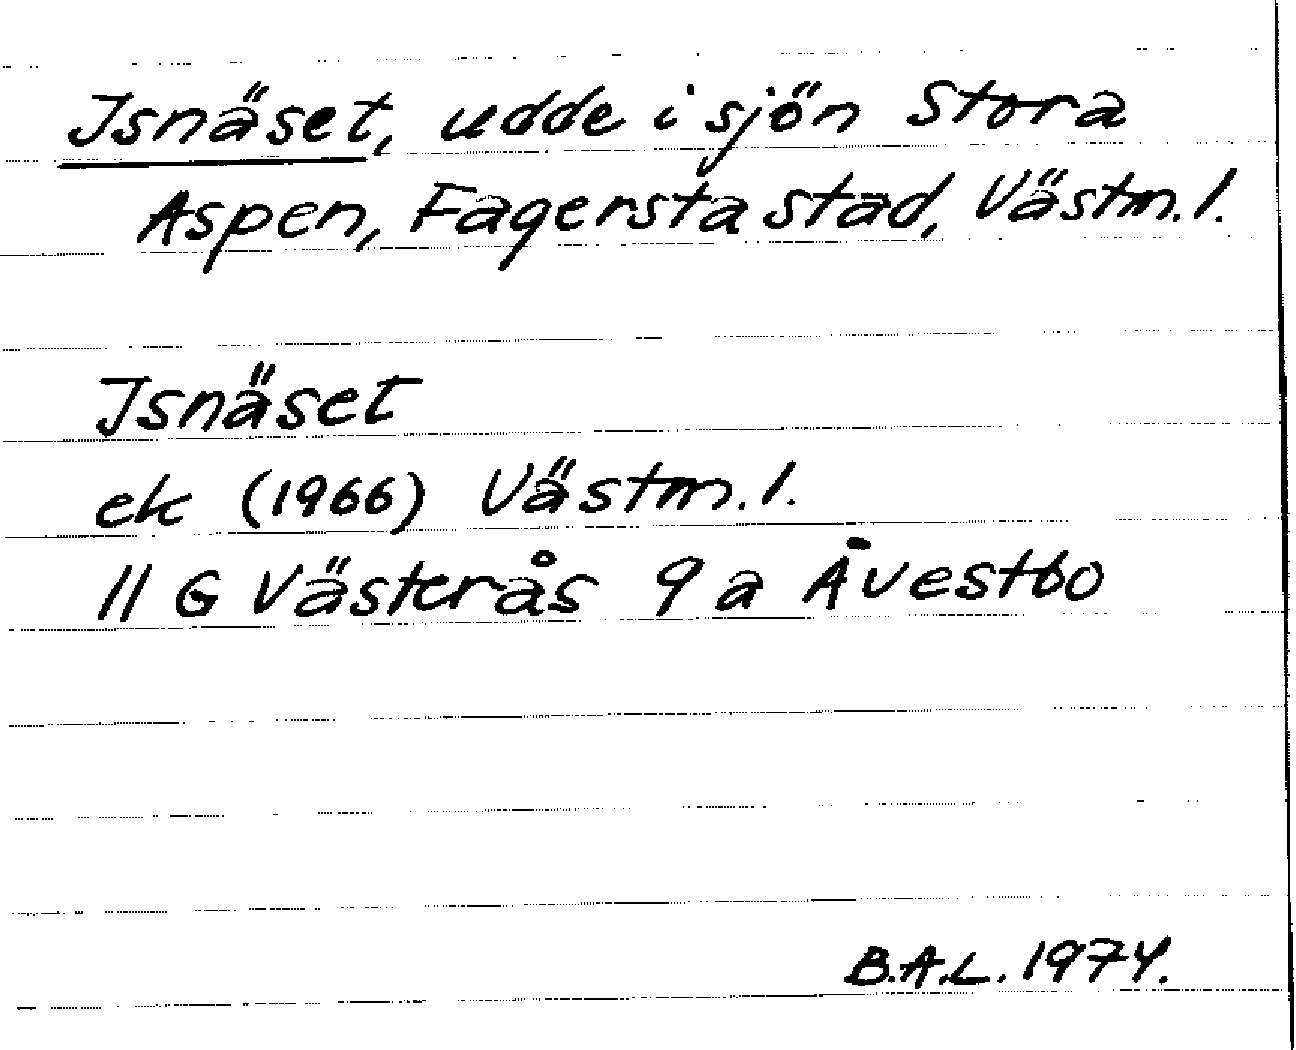 Isnäset, udde i sjön Stora
Aspen, Fagersta stad, Västm. l.
Isnäset
ek (1966) Västm. l.
11 G Västerås 9 a Åvestbo
B.A.L. 1974.